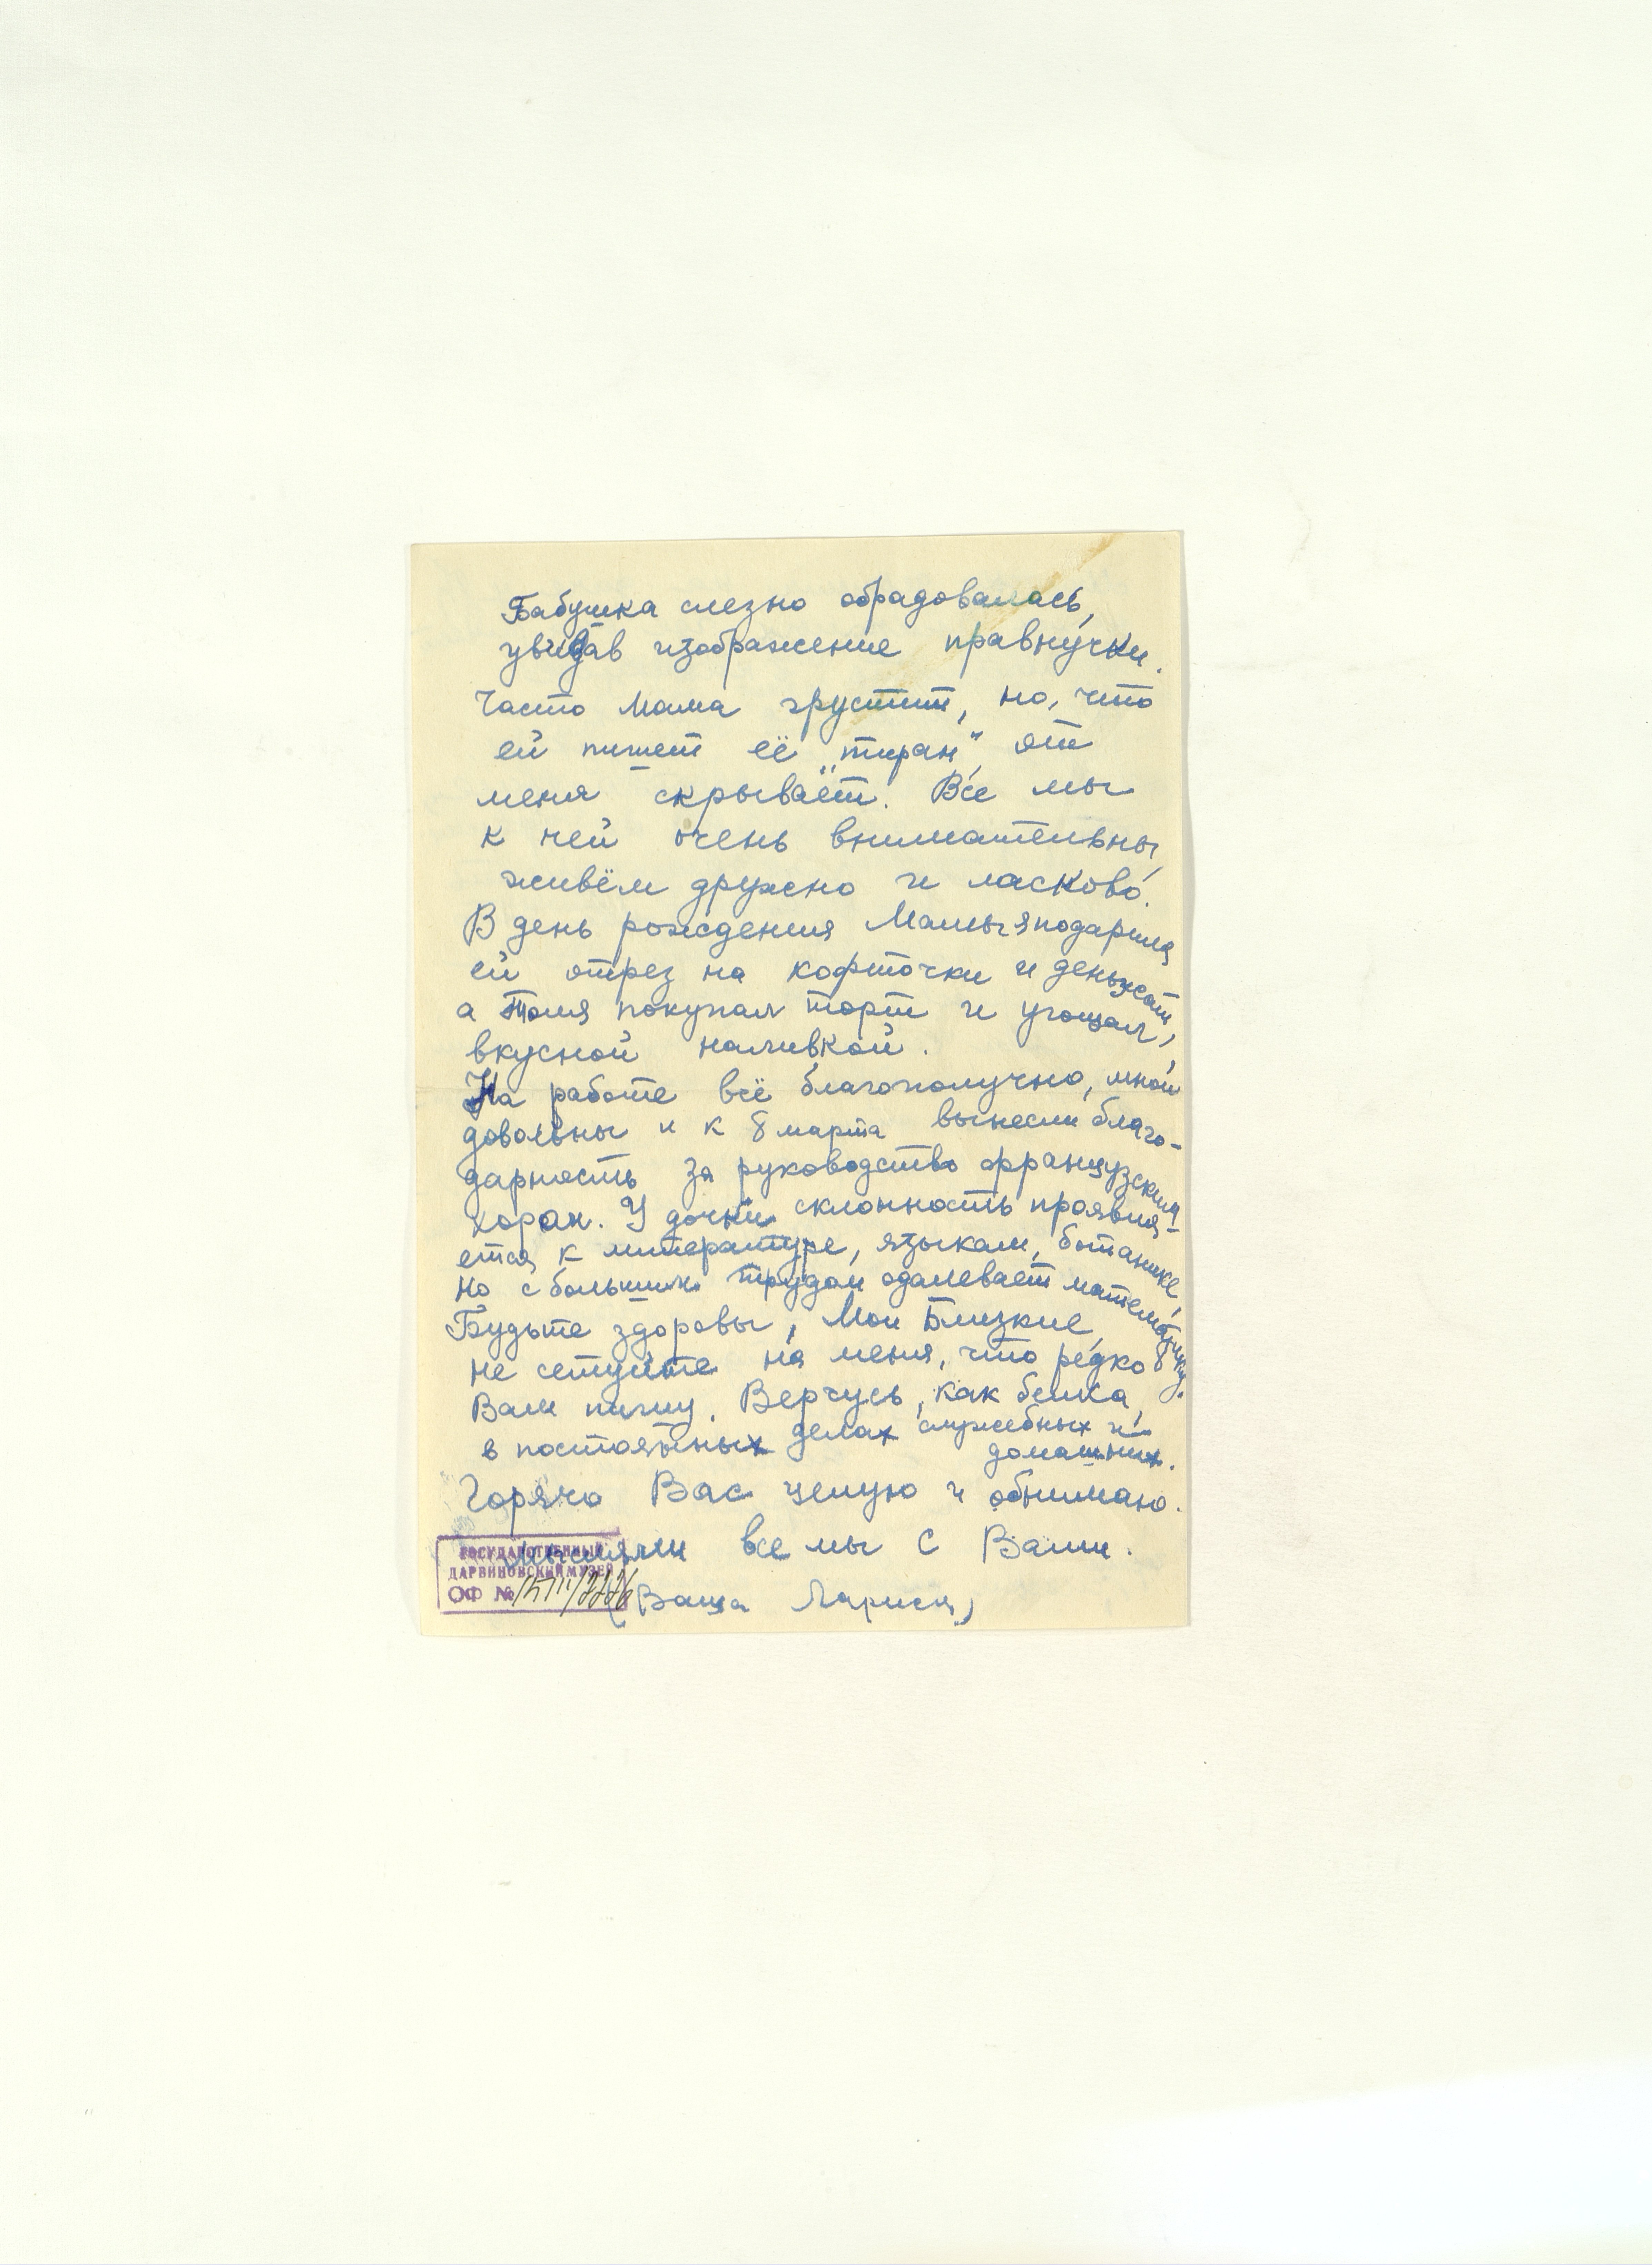 Бабушка слезно обрадовалась,
увидав изображение правнучки.
Часто Мама грустит, но, что
ей пишет её „тиран“ от
меня скрывает. Все мы
к ней очень внимательны,
живём дружно и ласково.
В день рождения Мамы я подарила
ей отрез на кофточки и деньжат,
а Толя покупал торт и угощал,
вкусной наливкой.
На работе всё благополучно, мной
довольны и к 8 марта вынесли благо-
дарность за руководство французским
хором. У дочки склонность проявля-
ется к литературе, языкам, ботанике,
но с большим трудом одалевает математику.
Будьте здоровы, Мои Близкие,
не сетуйте на меня, что редко
Вам пишу. Верчусь, как белка,
в постоянных делах служебных и
домашних.
Горячо Вас целую и обнимаю.
Мыслями все мы с Вами.
(Ваша Лариса)
ГОСУДАРСТВЕННЫЙ
ДАРВИНОВСКИЙ МУЗЕЙ
ОФ №